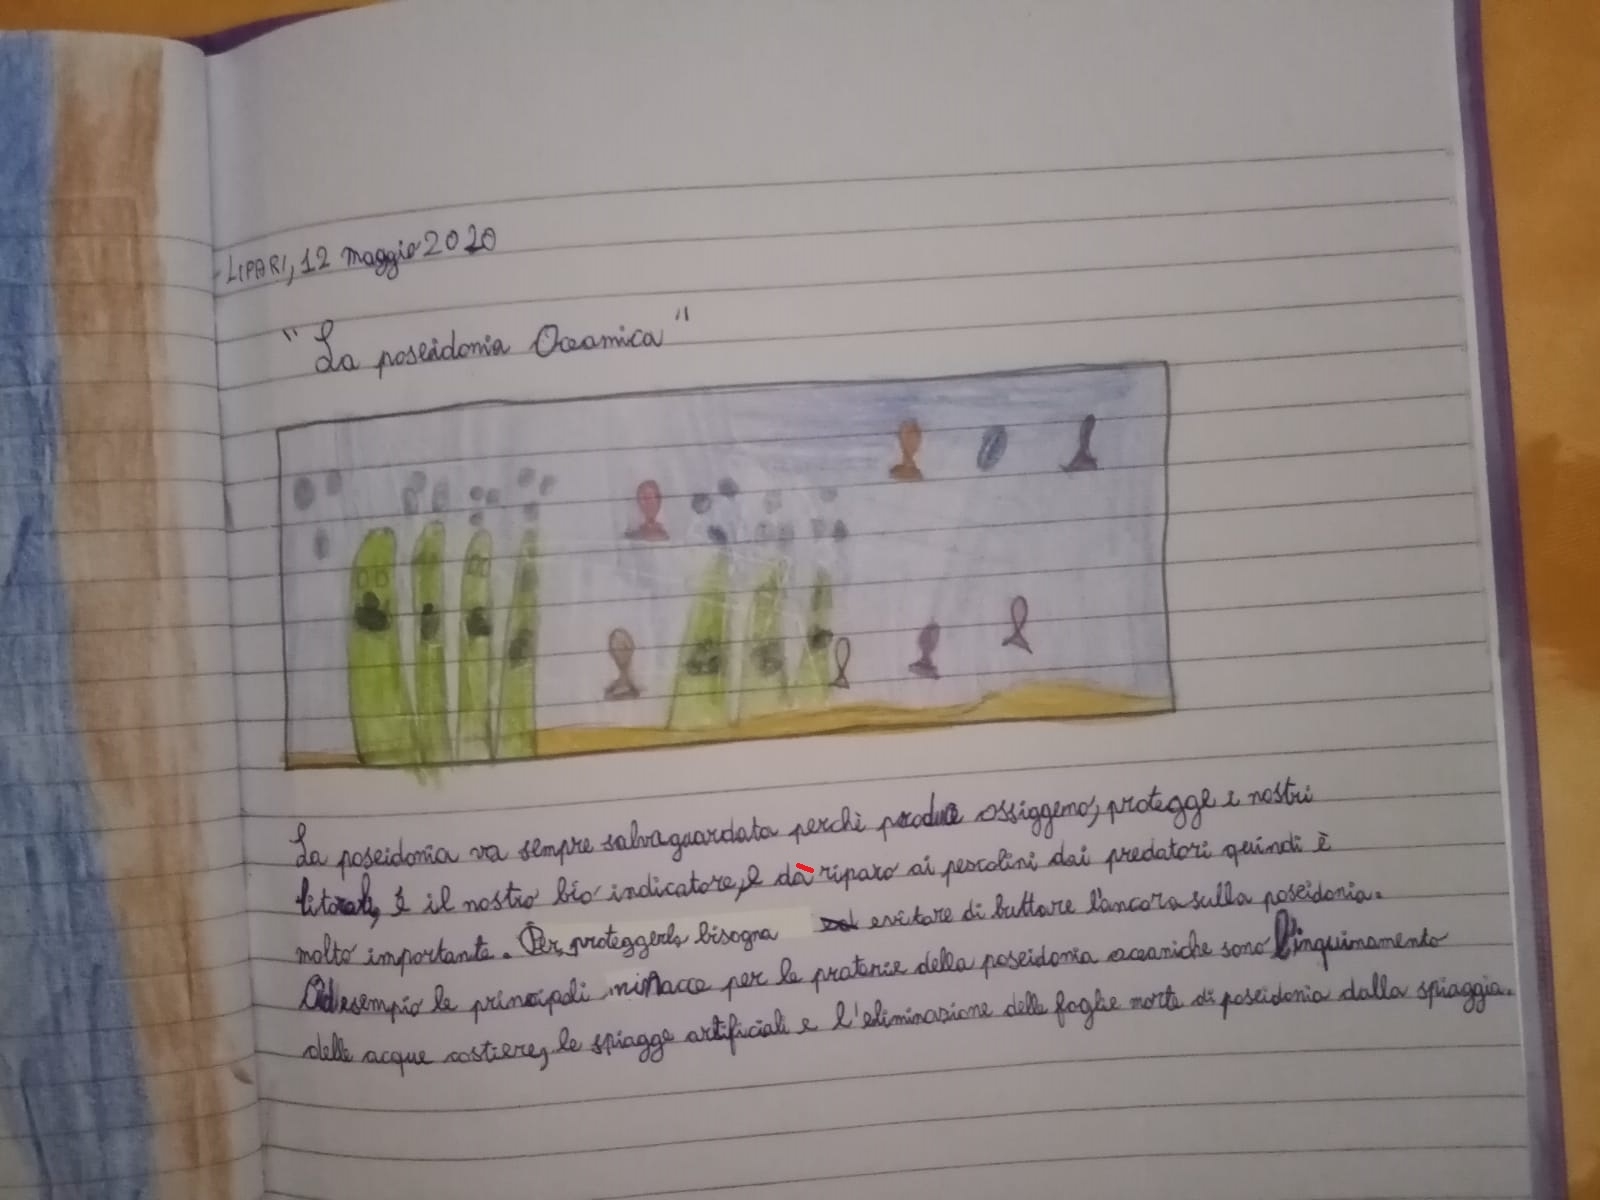 LIPARI, 12 maggio 2020
"La poseidonia Oceanica"
La poseidonia va sempre salvaguardata perchè produce ossiggeno, protegge i nostri
litorali, è il nostro bio indicatore, e dà riparo ai pescolini dai predatori quindi è
molto importante. Per proteggerla bisogna evitare di buttare l'ancora sulla poseidonia.
Ad esempio le principali minacce per le praterie della poseidonia oceaniche sono l'inquinamento
delle acque costiere, le spiagge artificiali e l'eliminazione delle foglie morte di poseidonia dalla spiaggia.